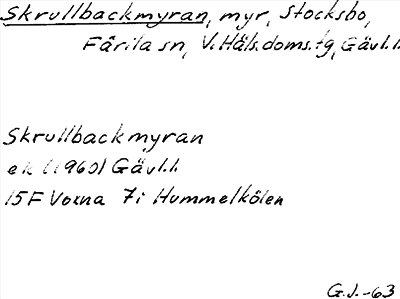 Skrullbackmyran, myr, Stocksbo,
Färila sn, V. Häls. doms. tg, Gävl. l.
Skrullbackmyran
ek (1960) Gävl. l.
15F Voxna 7i Hummelkölen
G.J.-63